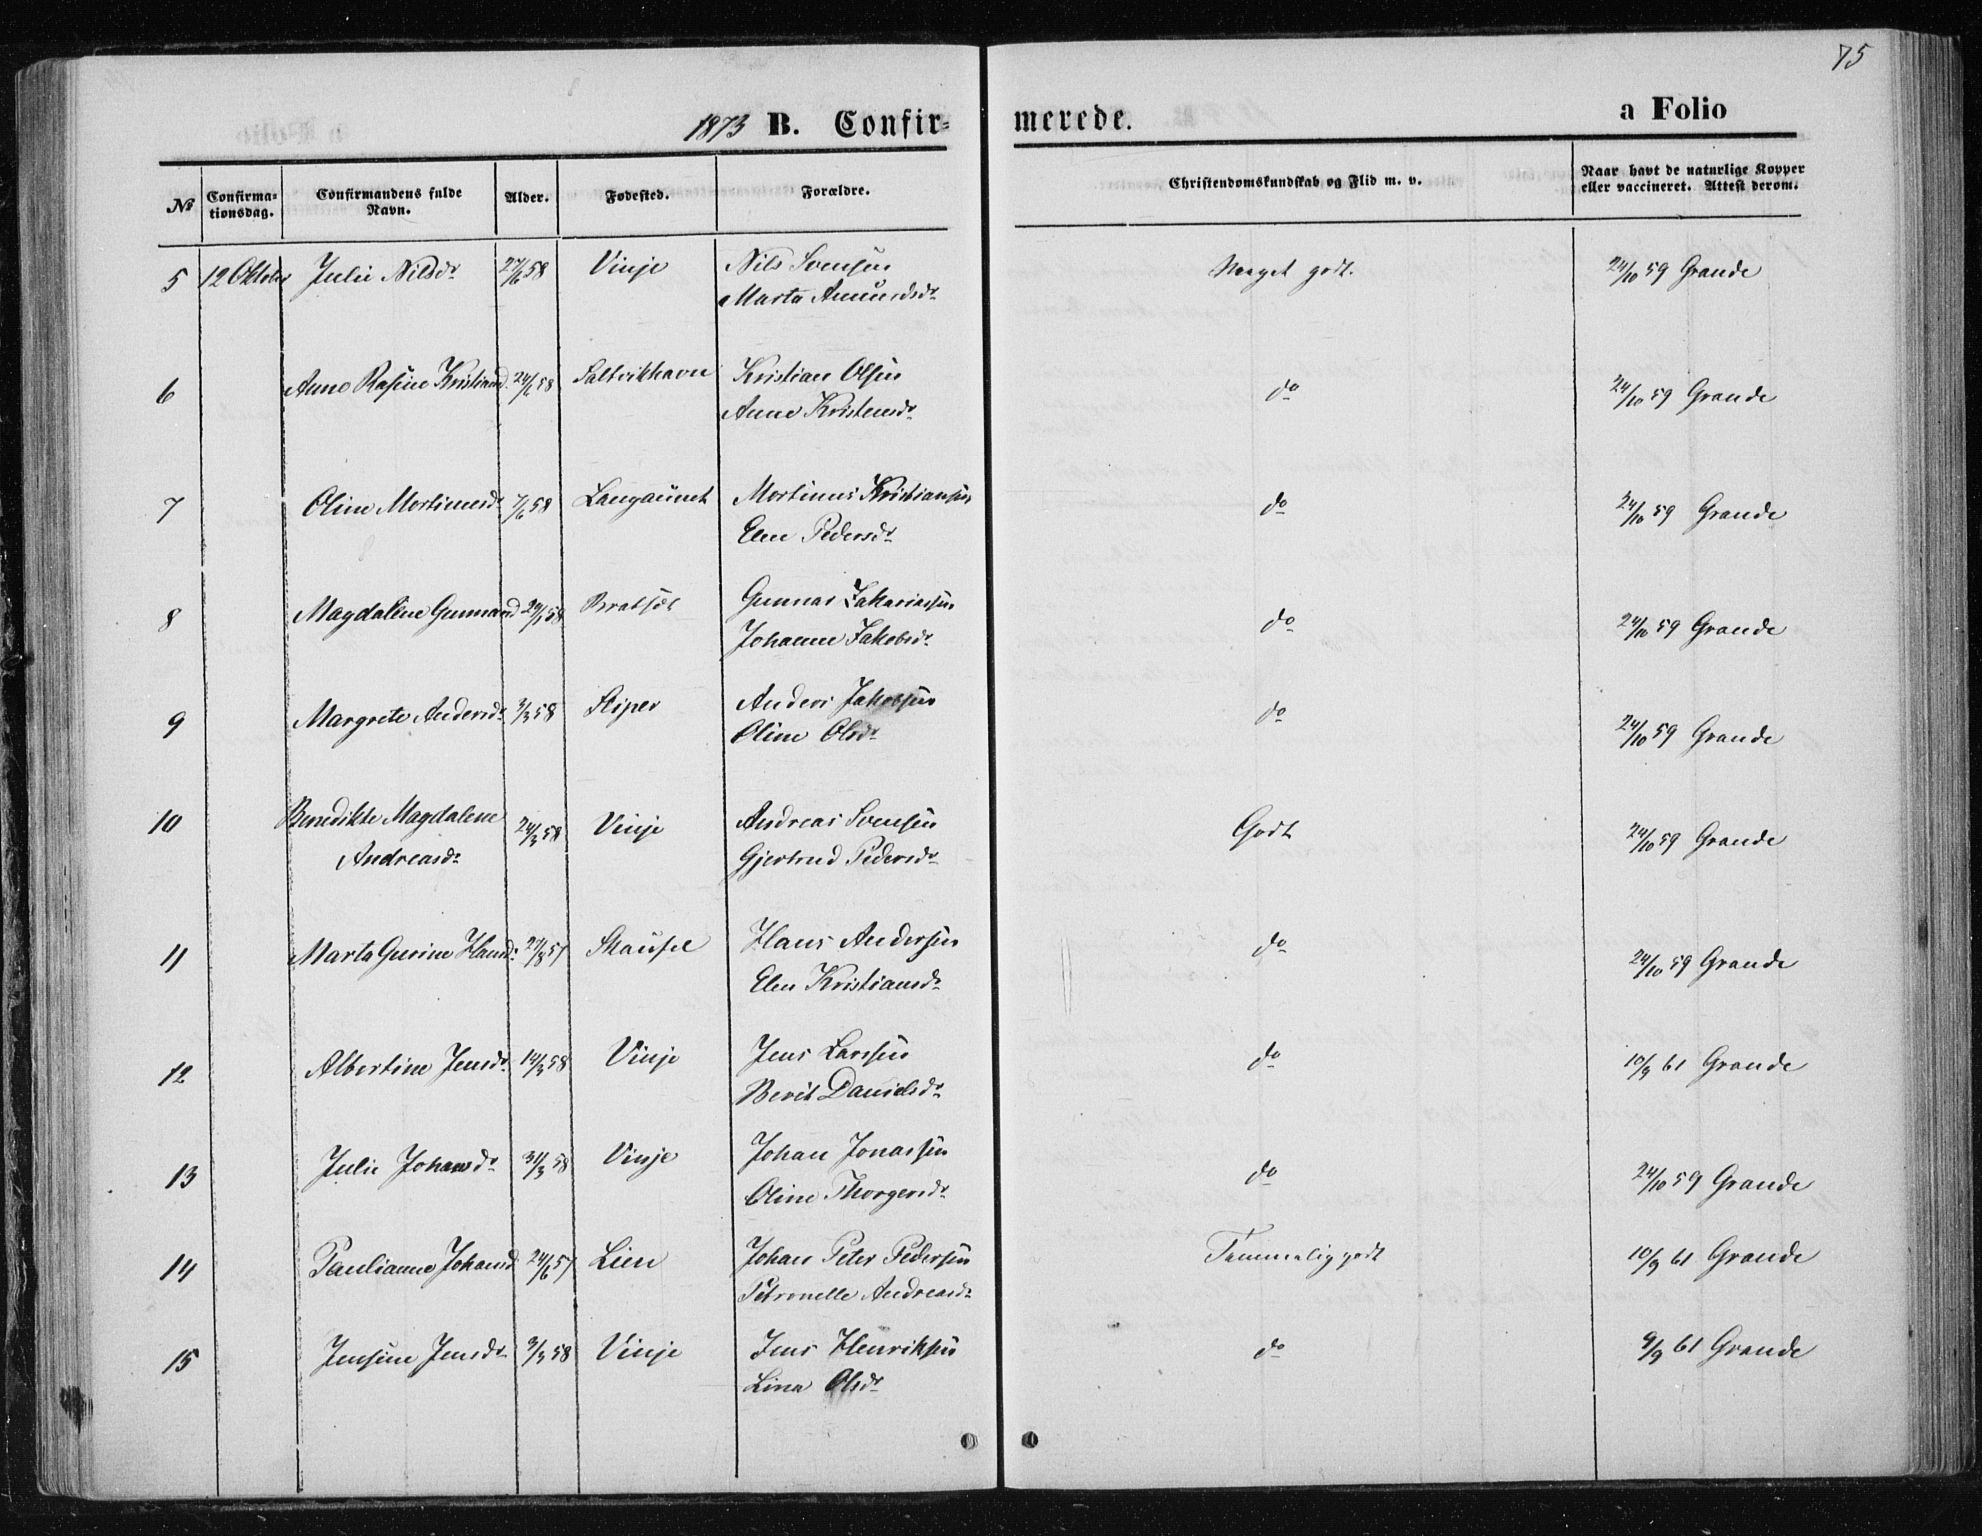 75
1873 B. Confir- merede. a Folio
No Confirma-tionsdag. Confirmandens fulde Navn. Alder. Fødested. Forældre. Christendomskundskab og Flid m. v. Naar havt de naturlige Kopper eller vaccineret. Attest derom.
5 12 Oktober Julie Nilsdr 27/6 58 Vinje Nils Svensen Meget godt. 24/10 59 Grande
Marta Amundsdr
6 Anne Rasine Kristiand. 24/6 58 Saltvikhavn Kristian Olsen do 24/10 59 Grande
Anne Kristensdr
7 Oline Mortinusd. 7/6 58 Langaunet Mortinus Kristiansen do 24/10 59 Grande
Elen Pedersdr
8 Magdalene Gunnard 58 Bratset Gunnar Zakariassen do 24/10 59 Grande
Johanne Jakobsdr
9 Margrete Andersdr 3/3 58 Stiper Anders Jakobsen do 24/10 59 Grande
Oline Olsdr
10 Benedikte Magdalene 24/3 58 Vinje Andreas Svensen Godt 24/10 59 Grande
Andreasdr Gjertrud Pedersdr
11 Marta Gurine Hansd. 27/8 57 Skaufel Hans Andersen do 24/10 59 Grande
Elen Kristiansdr
12 Albertine Jensdr 14/3 58 Vinje Jens Larsen do 10/9 61 Grande
Berit Danielsdr
13 Julie Johansdr 31/3 58 Vinje Johan Jonassen do 24/10 59 Grande
Oline Thorgersdr
14 Paulianne Johansd 24/6 57 Lien Johan Peter Pedersen Temmelig godt 10/9 61 Grande
Petronelle Andreasdr
15 Jensine Jensdr 3/3 58 Vinje Jens Henriksen do 9/9 61 Grande
Lina Olsdr